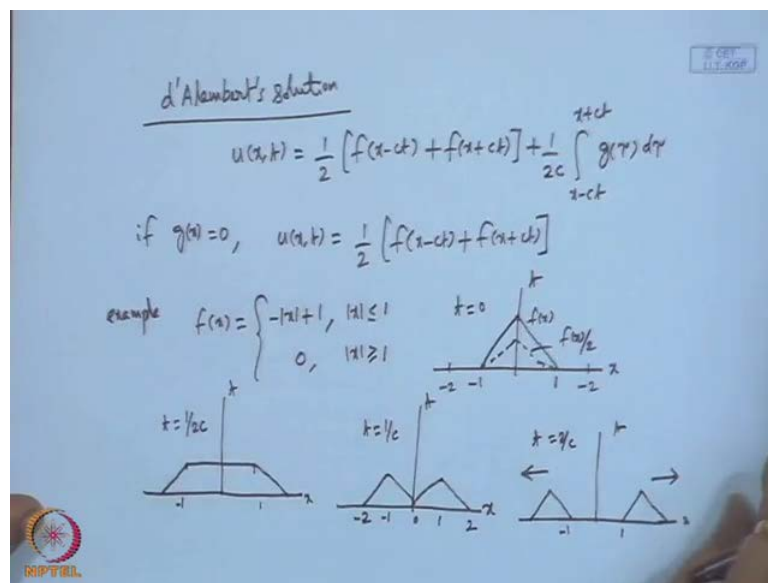 © CET
I.I.T. KGP
d'Alembert's Solution
u(x,t) = 1/2 [f(x-ct) + f(x+ct)] + 1/2c ∫_{x-ct}^{x+ct} g(τ) dτ
if g(x) = 0, u(x,t) = 1/2 [f(x-ct) + f(x+ct)]
example f(x) = { -|x|+1, |x| ≤ 1
0, |x| ≥ 1
t=0 t f(x) f(x)/2
-2 -1 1 -2 x
t=1/2c t 1
-1 1 x
t=1/c t
-2 -1 0 1 2 x
t=2/c t
-1 1 x
NPTEL